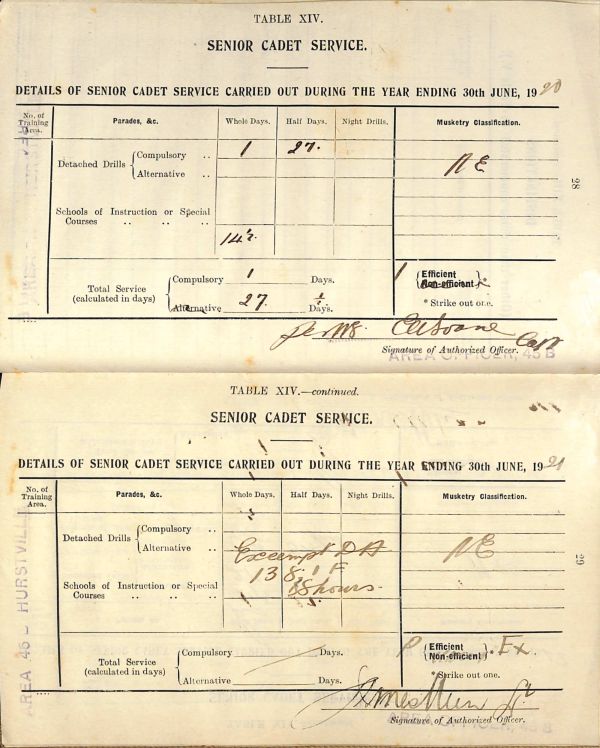 TABLE XIV.
SENIOR CADET SERVICE.
DETAILS OF SENIOR CADET SERVICE CARRIED OUT DURING THE YEAR ENDING 30th JUNE, 1920
No. of Training Area. Parades, &c. Whole Days. Half Days. Night Drills. Musketry Classification.
Detached Drills { Compulsory .. 1 27. NE
Alternative ..
28
Schools of Instruction or Special
Courses .. .. ..
14½
Total Service (calculated in days) { Compulsory 1 Days.
Alternative 27 ½ Days.
1 { Efficient
Non-efficient } *
* Strike out one.
Capt
Signature of Authorized Officer.
AREA OFFICER, 45 B
TABLE XIV.—continued.
SENIOR CADET SERVICE.
DETAILS OF SENIOR CADET SERVICE CARRIED OUT DURING THE YEAR ENDING 30th JUNE, 1921
No. of Training Area. Parades, &c. Whole Days. Half Days. Night Drills. Musketry Classification.
Detached Drills { Compulsory ..
Alternative .. Exempt D A NE
29
Schools of Instruction or Special
Courses .. .. .. hours
AREA 45 B HURSTVILLE
Total Service (calculated in days) { Compulsory Days.
Alternative Days.
{ Efficient
Non-efficient } * Ex.
* Strike out one.
Signature of Authorized Officer.
AREA OFFICER, 45 B